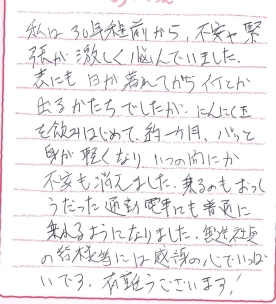 私は30年程前から、不安や緊
張が激しく悩んでいました。
表にも日が暮れてから何とか
出るかたちでしたが、にんにく玉
を飲みはじめて、約一カ月、パッと
身が軽くなり いつの間にか
不安も消えました。乗るのもおっく
うだった通勤電車にも普通に
乗れるようになりました。
の 様 には感謝の心でいっぱ
いです。有難うございます!